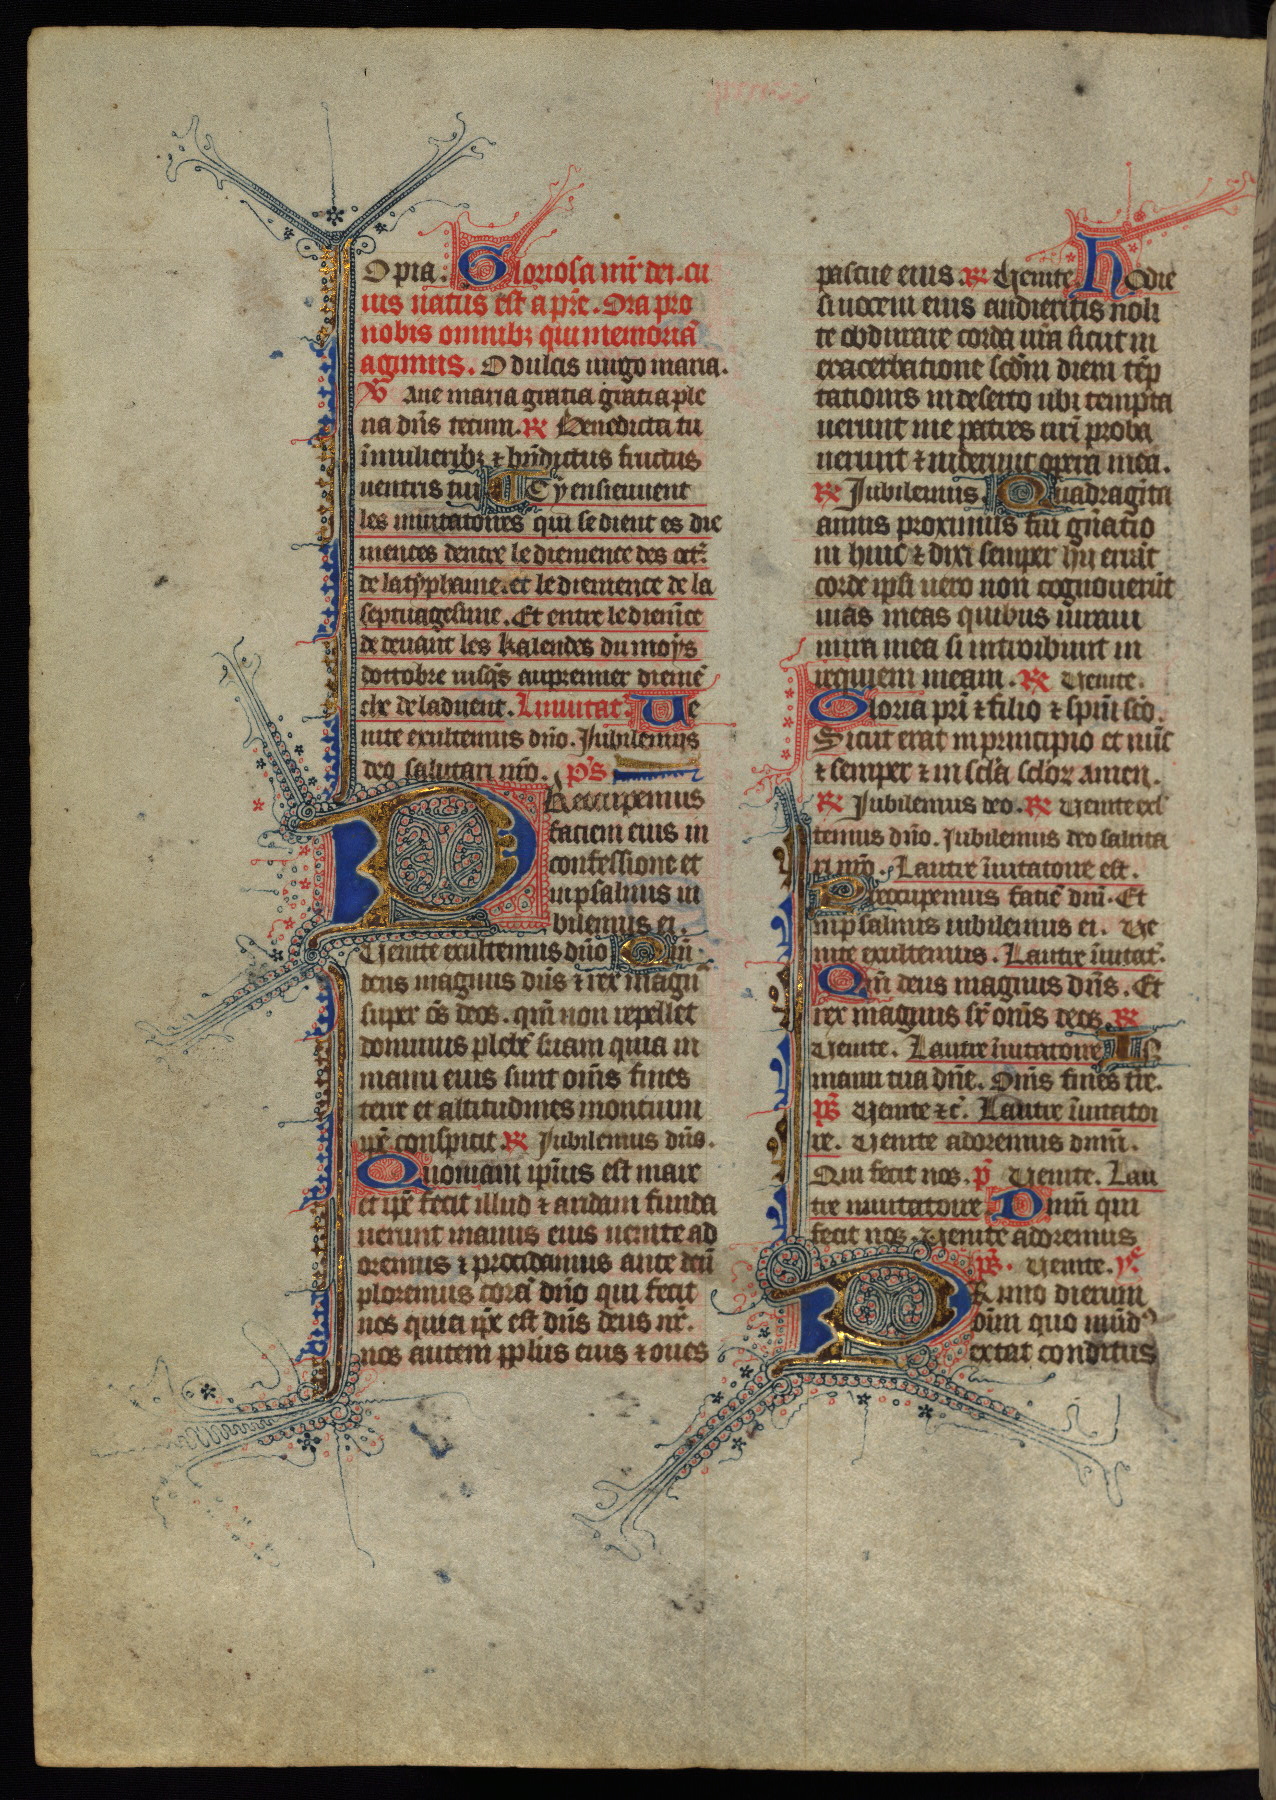 O pia. Gloriosa mr̄ dei. cu
ius natus est a pr̄e. Ora pro
nobis omnibꝫ qui memoriā
agimus. O dulcis uirgo maria.
℣ Aue maria gratia gratia ple
na dn̄s tecum. ℟ Benedicta tu
īmulieribꝫ ⁊ bn̄dictus fructus
uentris tui Cy ensieuuent
les inuitatoires qui se dient es die
mences dentre le diemence des oct̄.
de latyphaine. et le diemence de la
septuagesime. Et entre le diem̄ce
de deuant les kalendes du moys
dottobre iusq̄s au premier diemē
che de laduent. Inuitat̄. Ve
nite exultemus dn̄o. Iubilemus
deo salutari nr̄o. p̄s
Preocupemus
faciem eius in
confessione et
in psalmis iu
bilemus ei.
Venite exultemus dn̄o Qm̄
deus magnus dn̄s ⁊ rex magn
super ōs deos. qm̄ non repellet
dominus plebē suam quia in
manu eius sunt om̄s fines
terre et altitudines montium
ip̄e conspicit ℟ Iubilemus dn̄s.
Quoniam ip̄ius est mare
et ip̄e fecit illud ⁊ aridam funda
uerunt manus eius uenite ad
oremus ⁊ procidamus ante deū
ploremus corā dn̄o qui fecit
nos quia ip̄e est dn̄s deus nr̄.
nos autem pplus eius ⁊ oues
pascue eius. ℟ Venite. Hodie
si uocem eius audieritis noli
te obdurare corda ur̄a sicut in
exacerbatione scd̄m diem tēp
tationis in deserto ubi tempta
uerunt me patres ur̄i proba
uerunt ⁊ uiderunt opera mea.
℟ Iubilemus. Quadragīta
annis proximus fui gn̄atio
ni huic ⁊ dixi semper hij errāt
corde ipsi uero non cognouerūt
uias meas quibus iuraui
in ira mea si introibunt in
requiem meam. ℟ Venite.
Gloria pr̄i ⁊ filio ⁊ spūi sco̅.
Sicut erat in principio et nūc
⁊ semper ⁊ in scl̄a scl̄oꝝ amen.
℟ Iubilemus deo. ℟ Venite exl
temus dn̄o. Iubilemus deo saluta
ri nr̄o. Lautre īuitatoire est.
Preocupemus faciē dn̄i. Et
in psalmis iubilemus ei. Ve
nite exultemus. Lautre īuitat̄.
Qm̄ deus magnus dn̄s. Et
rex magnus sr̄ om̄s deos. ℟
Venite. Lautre īuitatoire In
manu tua dn̄e. Om̄s fines tr̄e.
p̄s Venite ⁊c̄. Lautre īuitatoi
re. Venite adoremus dnm̄.
Qui fecit nos. p̄ Venite. Lau
tre inuitatoire Dnm̄ qui
fecit nos. Venite adoremus
p̄s. Venite. y̅e
Primo dierum
oīm quo mūdꝰ
extat conditus